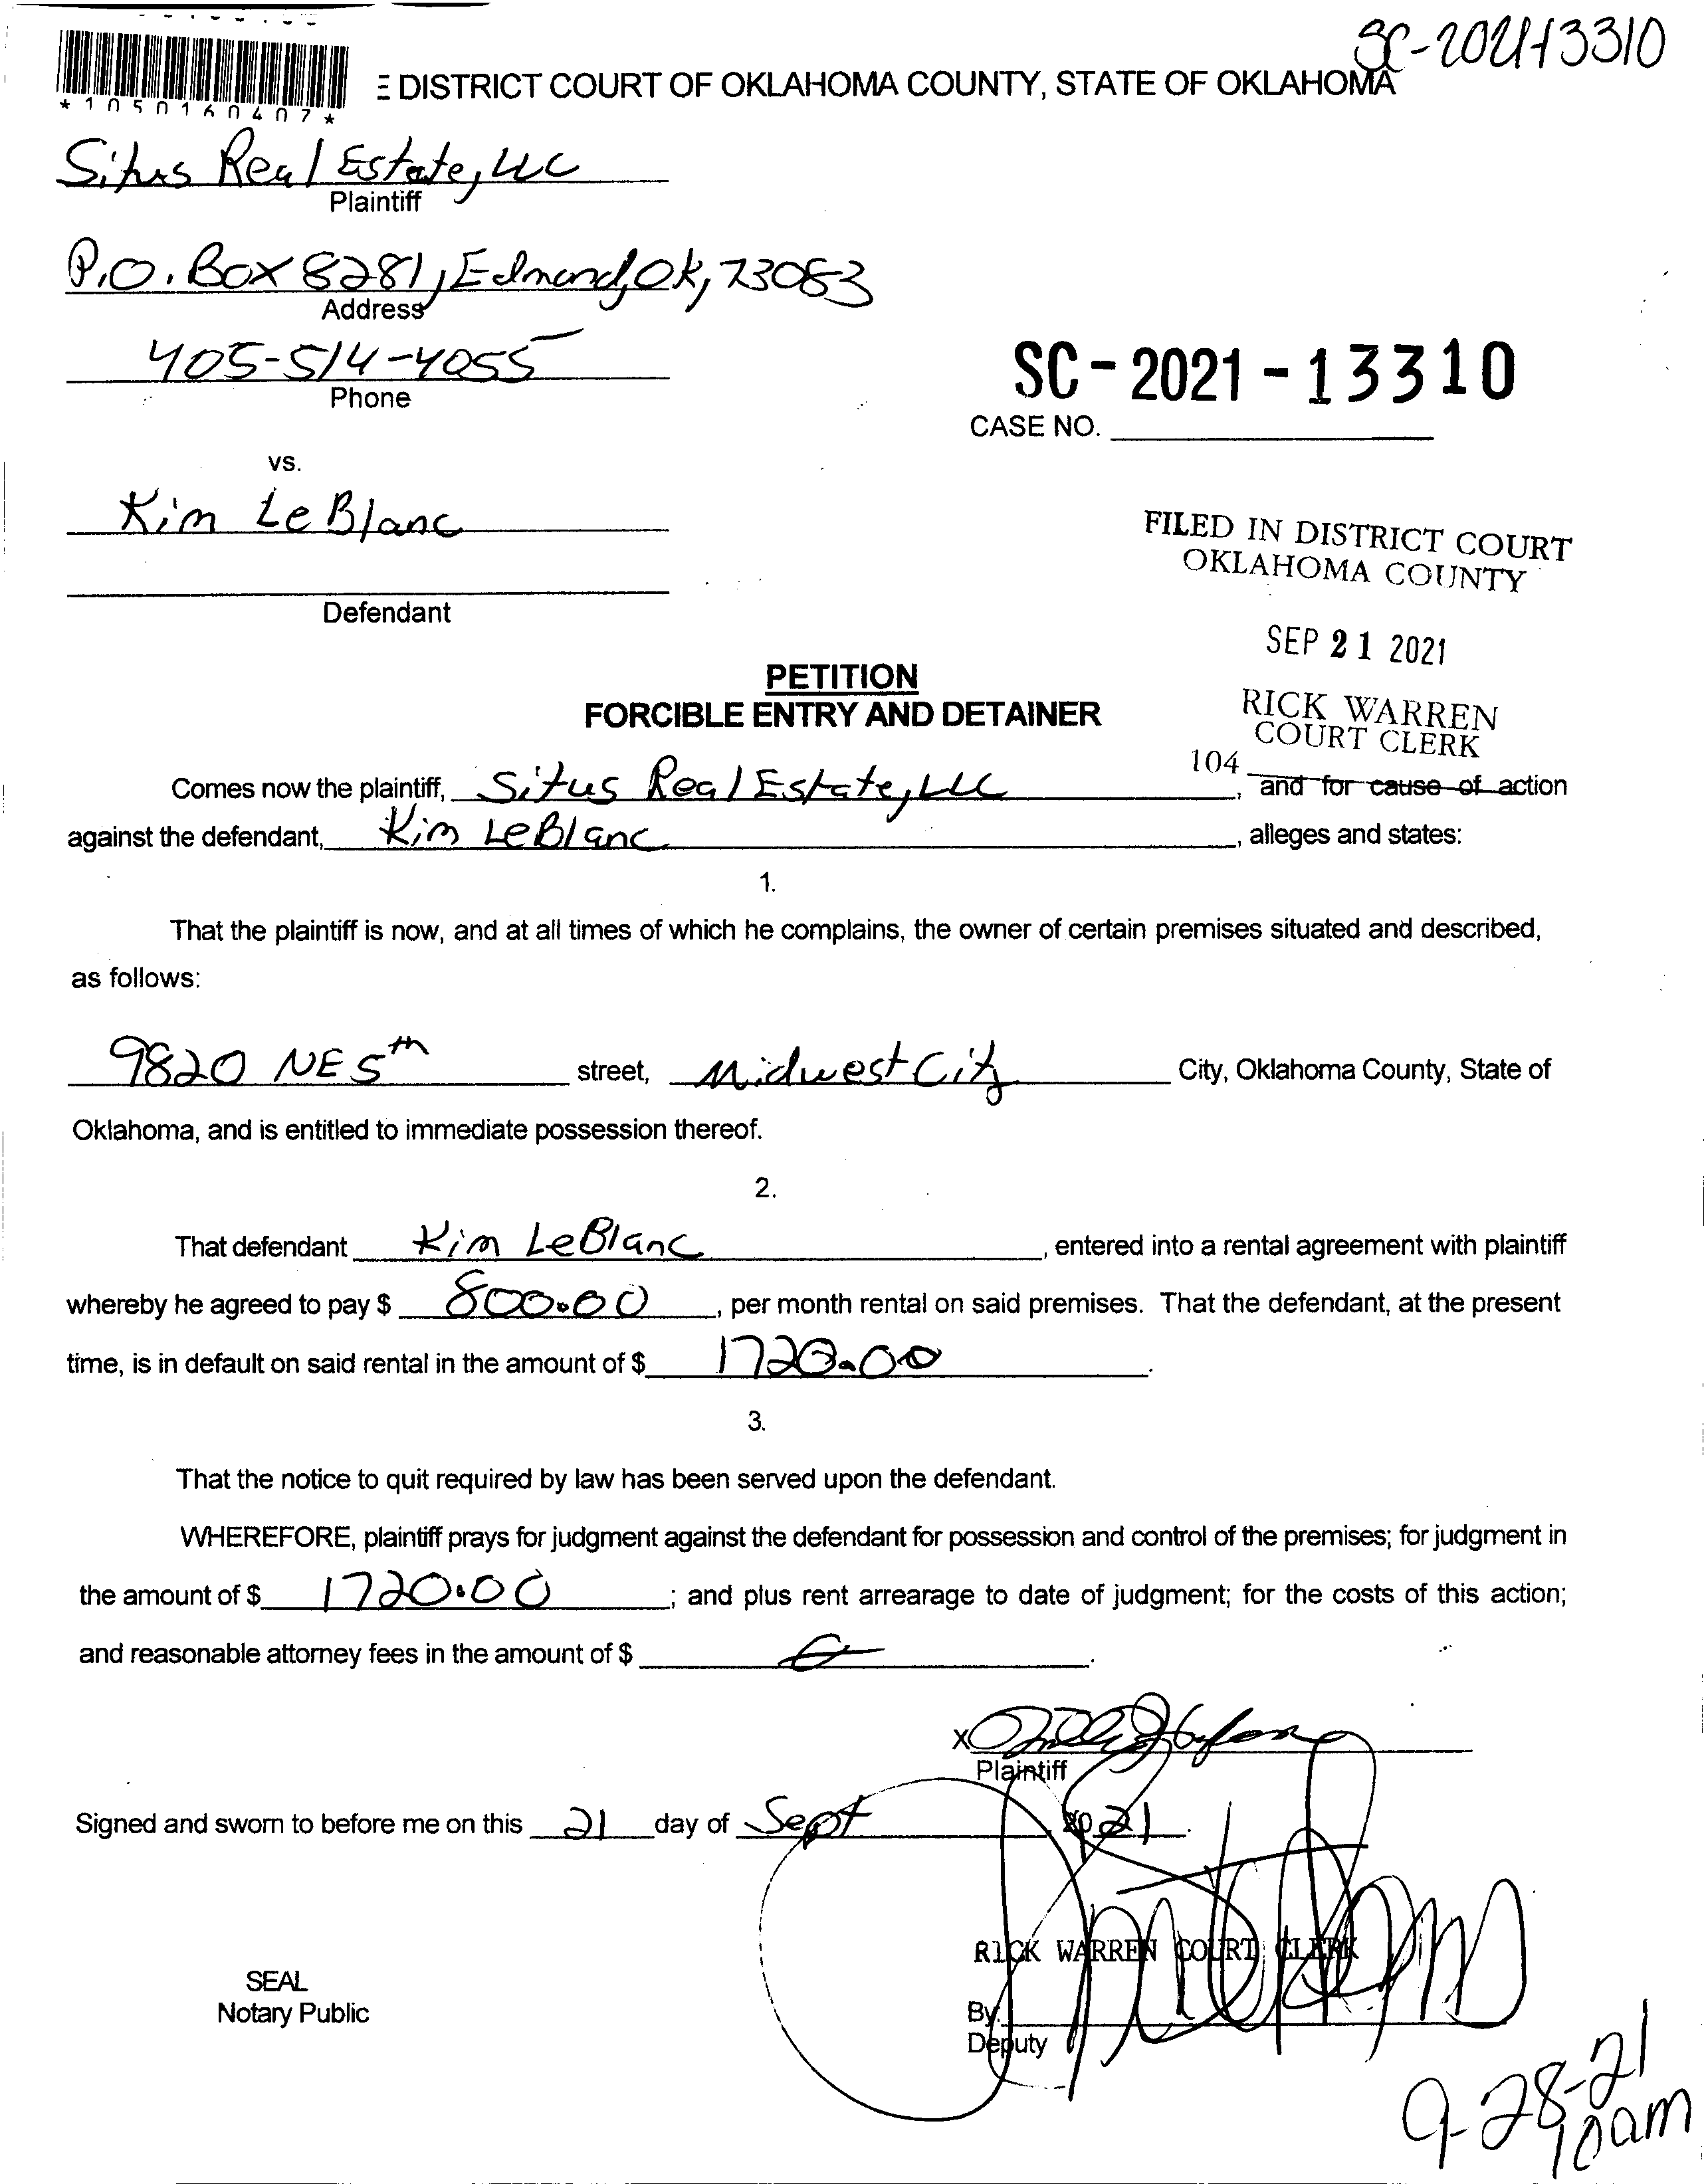 SC-2021-13310
*1050160407*
E DISTRICT COURT OF OKLAHOMA COUNTY, STATE OF OKLAHOMA
Situs Real Estate, LLC
Plaintiff
P.O. Box 8281, Edmond, Ok, 73083
Address
405-514-4055
Phone
SC-2021-13310
CASE NO.
vs.
Kim LeBlanc
Defendant
FILED IN DISTRICT COURT
OKLAHOMA COUNTY
SEP 21 2021
RICK WARREN
COURT CLERK
104
PETITION
FORCIBLE ENTRY AND DETAINER
Comes now the plaintiff, Situs Real Estate, LLC, and for cause of action
against the defendant, Kim LeBlanc, alleges and states:
1.
That the plaintiff is now, and at all times of which he complains, the owner of certain premises situated and described,
as follows:
9820 NE 5th street, Midwest City City, Oklahoma County, State of
Oklahoma, and is entitled to immediate possession thereof.
2.
That defendant Kim LeBlanc, entered into a rental agreement with plaintiff
whereby he agreed to pay $ 800.00, per month rental on said premises. That the defendant, at the present
time, is in default on said rental in the amount of $ 1720.00.
3.
That the notice to quit required by law has been served upon the defendant.
WHEREFORE, plaintiff prays for judgment against the defendant for possession and control of the premises; for judgment in
the amount of $ 1720.00; and plus rent arrearage to date of judgment; for the costs of this action;
and reasonable attorney fees in the amount of $
X
Plaintiff
Signed and sworn to before me on this 21 day of Sept, 2021.
RICK WARREN COURT CLERK
SEAL
Notary Public
By:
Deputy
9-28-21
10am